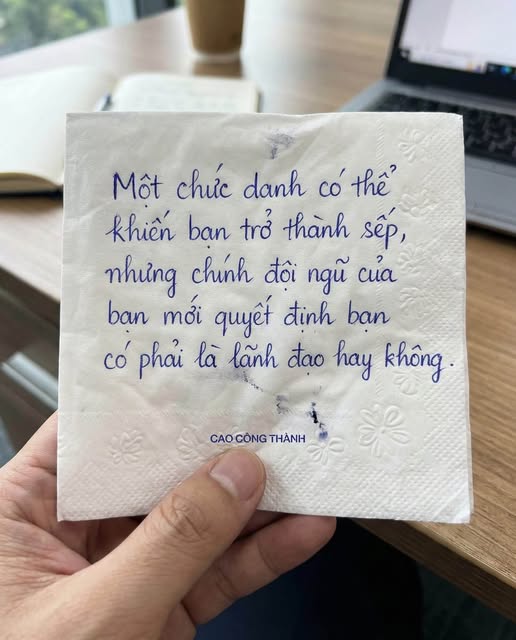 Một chức danh có thể
khiến bạn trở thành sếp,
nhưng chính đội ngũ của
bạn mới quyết định bạn
có phải là lãnh đạo hay không.
CAO CÔNG THÀNH